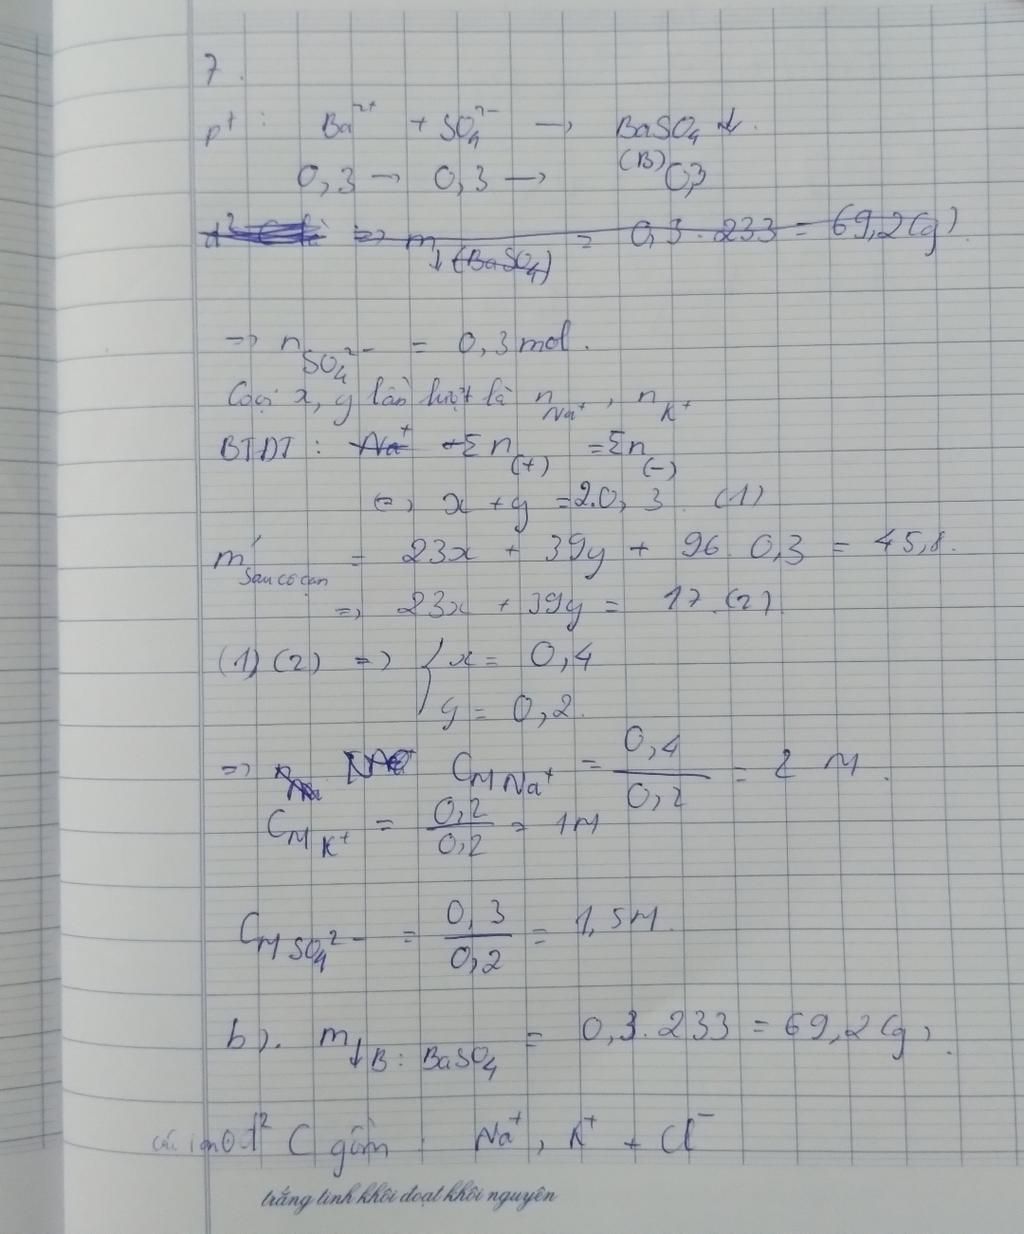 7.
pt : Ba²⁺ + SO₄²⁻ → BaSO₄ ↓.
0,3 → 0,3 → (B) 0,3
⇒ m↓(BaSO₄) = 0,3 . 233 = 69,2(g).
⇒ nSO₄²⁻ = 0,3 mol.
Gọi x, y lần lượt là nNa⁺, nK⁺
BTDT : Na⁺ Σn(+) = Σn(-)
⇔ x + y = 2.0,3 (1)
m sau cô cạn = 23x + 39y + 96. 0,3 = 45,8.
⇒ 23x + 39y = 17 (2)
(1) (2) ⇒ { x = 0,4
y = 0,2.
⇒ CM Na⁺ = 0,4/0,2 = 2 M.
CM K⁺ = 0,2/0,2 = 1M
CM SO₄²⁻ = 0,3/0,2 = 1,5M.
b). m↓B : BaSO₄ = 0,3.233 = 69,2(g).
các ion d² C gồm : Na⁺, K⁺, Cl⁻
trắng tinh khôi đoạt khôi nguyên